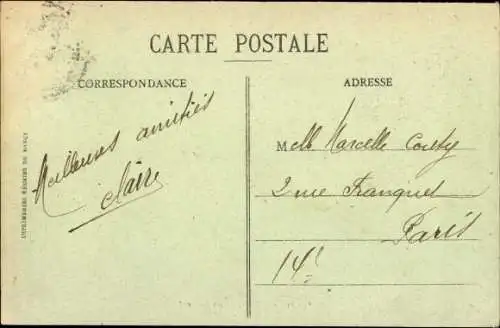 CARTE POSTALE
CORRESPONDANCE
ADRESSE
Meilleures amitiés
Claire
Melle Marcelle
2 rue Franquet
Paris
14e
IMPRIMERIES RÉUNIES DE NANCY